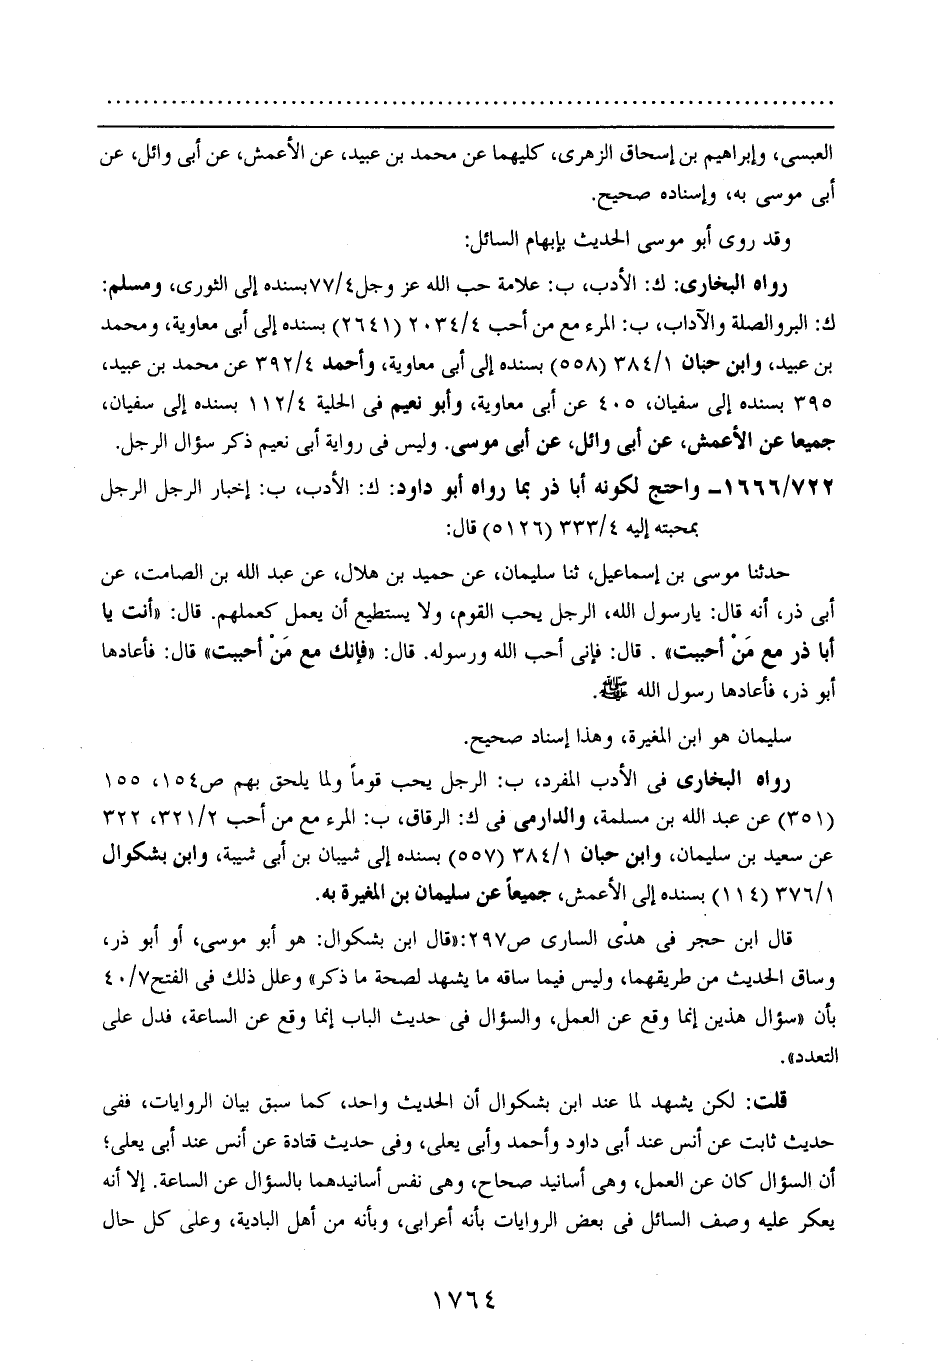 العبسى، وإبراهيم بن إسحاق الزهرى، كليهما عن محمد بن عبيد، عن الأعمش، عن أبى وائل، عن
أبى موسى به، وإسناده صحيح.
وقد روى أبو موسى الحديث بإبهام السائل:
رواه البخارى: ك: الأدب، ب: علامة حب الله عز وجل٧٧/٤بسنده إلى الثورى، ومسلم:
ك: البروالصلة والآداب، ب: المرء مع من أحب ٢٠٣٤/٤ (٢٦٤١) بسنده إلى أبى معاوية، ومحمد
بن عبيد، وابن حبان ٣٨٤/١ (٥٥٨) بسنده إلى أبى معاوية، وأحمد ٣٩٢/٤ عن محمد بن عبيد،
٣٩٥ بسنده إلى سفيان، ٤٠٥ عن أبى معاوية، وأبو نعيم فى الحلية ١١٢/٤ بسنده إلى سفيان،
جميعا عن الأعمش، عن أبى وائل، عن أبى موسى. وليس فى رواية أبى نعيم ذكر سؤال الرجل.
١٦٦٦/٧٢٢– واحتج لكونه أبا ذر بما رواه أبو داود: ك: الأدب، ب: إخبار الرجل الرجل
بمحبته إليه ٣٣٣/٤ (٥١٢٦) قال:
حدثنا موسى بن إسماعيل، ثنا سليمان، عن حميد بن هلال، عن عبد الله بن الصامت، عن
أبى ذر، أنه قال: يارسول الله، الرجل يحب القوم، ولا يستطيع أن يعمل كعملهم. قال: «أنت يا
أبا ذر مع مَنْ أحببت» . قال: فإنى أحب الله ورسوله. قال: «فإنك مع مَنْ أحببت» قال: فأعادها
أبو ذر، فأعادها رسول الله ﷺ.
سليمان هو ابن المغيرة، وهذا إسناد صحيح.
رواه البخارى فى الأدب المفرد، ب: الرجل يحب قوماً ولما يلحق بهم ص١٥٤، ١٥٥
(٣٥١) عن عبد الله بن مسلمة، والدارمى فى ك: الرقاق، ب: المرء مع من أحب ٣٢١/٢، ٣٢٢
عن سعيد بن سليمان، وابن حبان ٣٨٤/١ (٥٥٧) بسنده إلى شيبان بن أبى شيبة، وابن بشكوال
٣٧٦/١ (١١٤) بسنده إلى الأعمش، جميعاً عن سليمان بن المغيرة به.
قال ابن حجر فى هدْى السارى ص٢٩٧:«قال ابن بشكوال: هو أبو موسى، أو أبو ذر،
وساق الحديث من طريقهما، وليس فيما ساقه ما يشهد لصحة ما ذكر» وعلل ذلك فى الفتح٤٠/٧
بأن «سؤال هذين إنما وقع عن العمل، والسؤال فى حديث الباب إنما وقع عن الساعة، فدل على
التعدد».
قلت: لكن يشهد لما عند ابن بشكوال أن الحديث واحد، كما سبق بيان الروايات، ففى
حديث ثابت عن أنس عند أبى داود وأحمد وأبى يعلى، وفى حديث قتادة عن أنس عند أبى يعلى؛
أن السؤال كان عن العمل، وهى أسانيد صحاح، وهى نفس أسانيدهما بالسؤال عن الساعة. إلا أنه
يعكر عليه وصف السائل فى بعض الروايات بأنه أعرابى، وبأنه من أهل البادية، وعلى كل حال
١٧٦٤